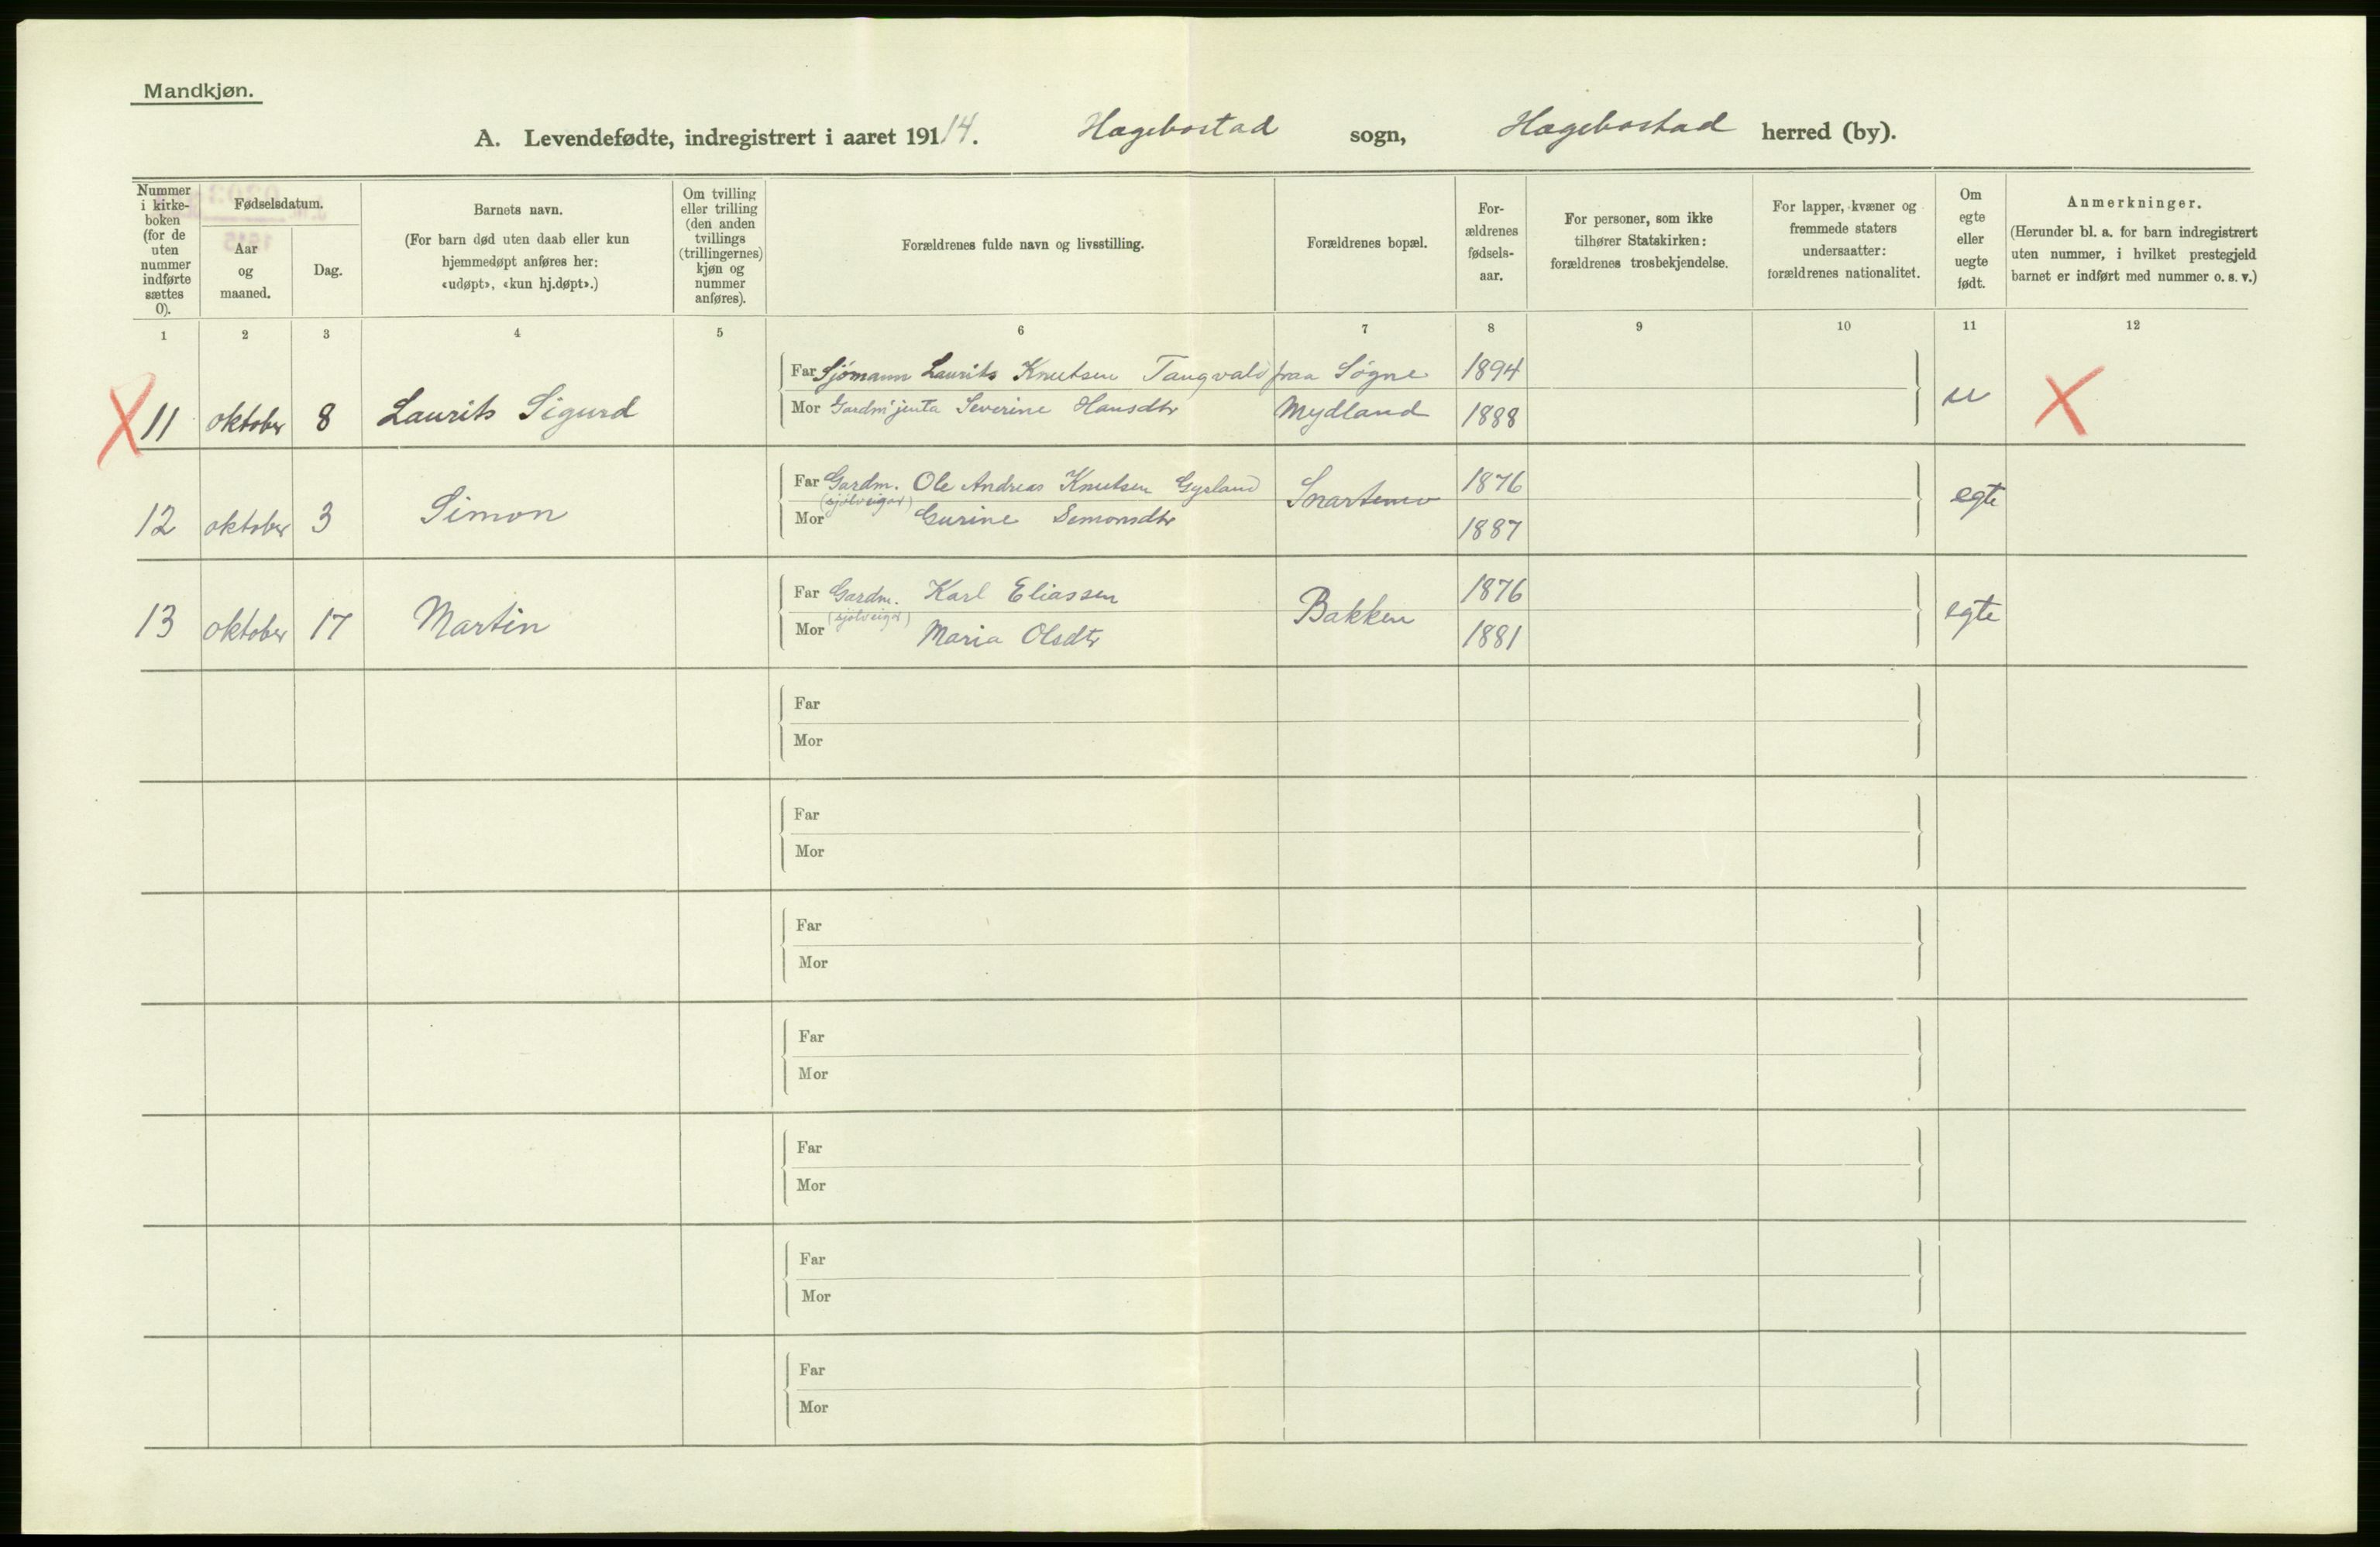 Mandkjøn.
A. Levendefødte, indregistrert i aaret 19114. Hægebostad sogn, Hægebostad herred (by).
Nummer i kirke-boken (for de uten nummer indførte sættes 0).
Fødselsdatum.
Aar og maaned.
Dag.
Barnets navn.
(For barn død uten daab eller kun hjemmedøpt anføres her: «udøpt», «kun hj.døpt».)
Om tvilling eller trilling (den anden tvillings (trillingernes) kjøn og nummer anføres).
Forældrenes fulde navn og livsstilling.
Forældrenes bopæl.
For-ældrenes fødsels-aar.
For personer, som ikke tilhører Statskirken: forældrenes trosbekjendelse.
For lapper, kvæner og fremmede staters undersaatter: forældrenes nationalitet.
Om egte eller uegte født.
Anmerkninger.
(Herunder bl. a. for barn indregistrert uten nummer, i hvilket prestegjeld barnet er indført med nummer o. s. v.)
1 2 3 4 5 6 7 8 9 10 11 12
Far Sjømann Laurits Knutsen Tangvald fraa Søgne 1894
X 11 oktober 8 Laurits Sigurd u X
Mor Gardm'jenta Severine Hansdtr Mydland 1888
Far Gardm. Ole Andreas Knutsen Gysland Snartemo 1876
(sjølveigar)
12 oktober 3 Simon egte
Mor Gurine Simonsdtr 1887
Far Gardm. Karl Eliassen 1876
(sjølveigar)
13 oktober 17 Martin Bakken egte
Mor Maria Olsdtr 1881
Far
Mor
Far
Mor
Far
Mor
Far
Mor
Far
Mor
Far
Mor
Far
Mor